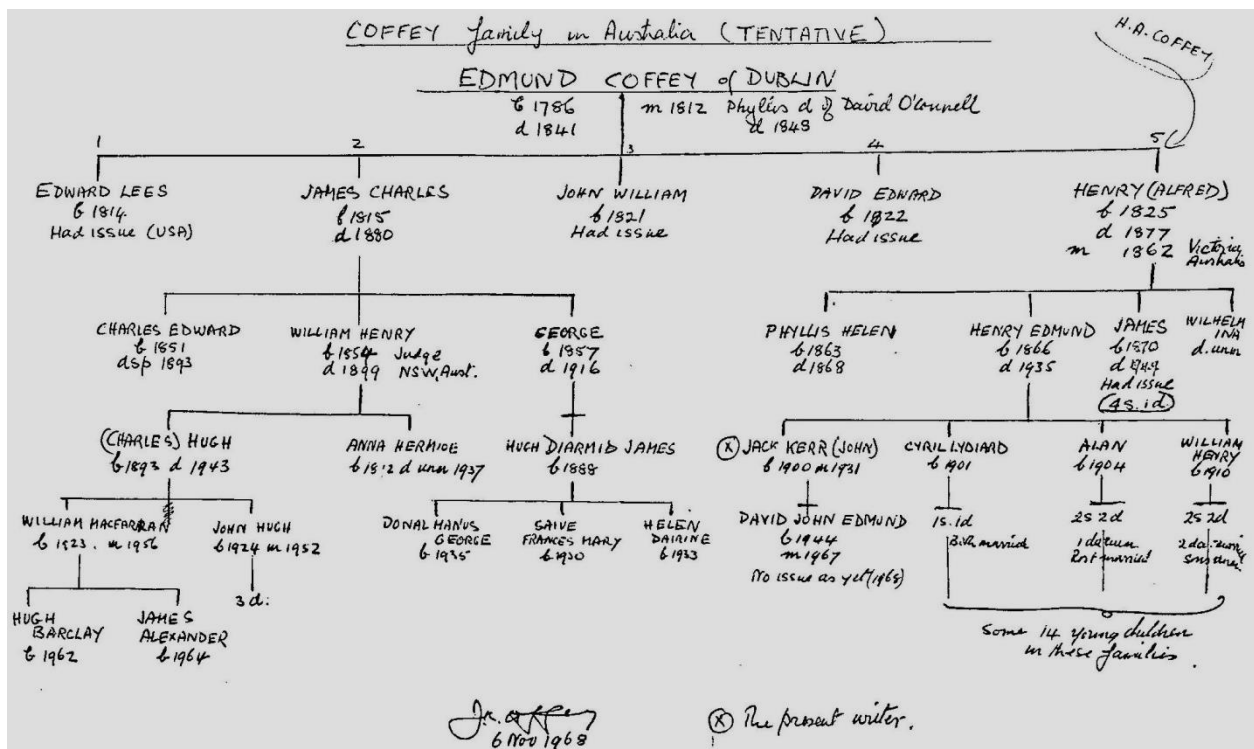 COFFEY family in Australia (TENTATIVE)
H.A. COFFEY
EDMUND COFFEY of DUBLIN
b 1786
d 1841
m 1812 Phyllis d of David O'Connell
d 1848
1 2 3 4 5
EDWARD LEES
b 1814
Had issue (USA)
JAMES CHARLES
b 1815
d 1880
JOHN WILLIAM
b 1821
Had issue
DAVID EDWARD
b 1822
Had issue
HENRY (ALFRED)
b 1825
d 1877
m 1862 Victoria
Australia
CHARLES EDWARD
b 1851
dsp 1893
WILLIAM HENRY
b 1854 Judge
d 1899 NSW, Aust.
GEORGE
b 1857
d 1916
PHYLLIS HELEN
b 1863
d 1868
HENRY EDMUND
b 1866
d 1935
JAMES
b 1870
d 1949
Had issue
(4s. 1d.)
WILHELM
INA
d. unm
(CHARLES) HUGH
b 1893 d 1943
ANNA HERMIOE
d unm 1937
HUGH DIARMID JAMES
b 1888
(X) JACK KERR (JOHN)
b 1900 m 1931
CYRIL LYDIARD
b 1901
ALAN
b 1904
WILLIAM
HENRY
b 1910
WILLIAM MACFARRAN
b 1923. m 1956
JOHN HUGH
b 1924 m 1952
DONAL MANUS
GEORGE
b 1935
SAIVE
FRANCES MARY
b 1930
HELEN
DAIRINE
b 1933
DAVID JOHN EDMUND
b 1944
m 1967
No issue as yet (1968)
1s. 1d
Both married
2s 2d
1 da unm
Rest married
2s 2d
2 da. married
3d.
HUGH
BARCLAY
b 1962
JAMES
ALEXANDER
b 1964
Some 14 young children
in these families.
6 Nov 1968
(X) The present writer.